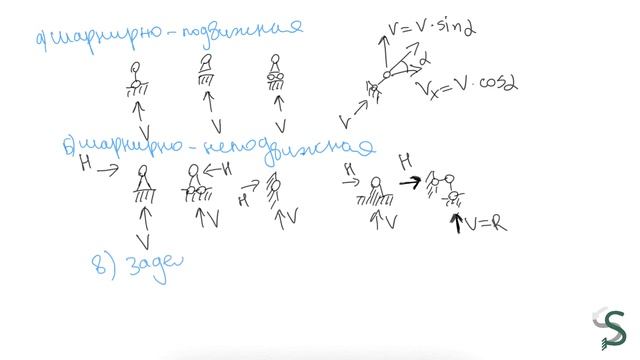 а) шарнирно-подвижная
V = V·sinα
α
Vx = V·cosα
V
V
V
V
б) шарнирно-неподвижная
H
H
H
H
H
V
V
V
V
V=R
в) задел
S